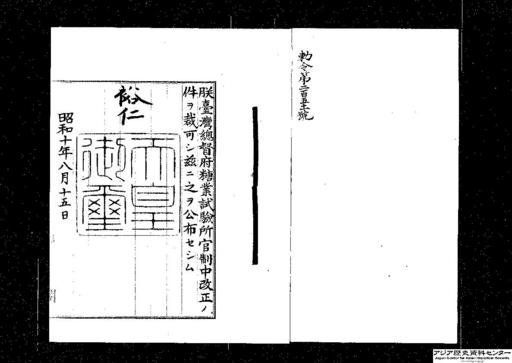 勅令第二百五十號
朕臺灣總督府糖業試驗所官制中改正ノ
件ヲ裁可シ茲ニ之ヲ公布セシム
裕仁
天皇御璽
昭和十年八月十五日
アジア歴史資料センター
Japan Center for Asian Historical Records